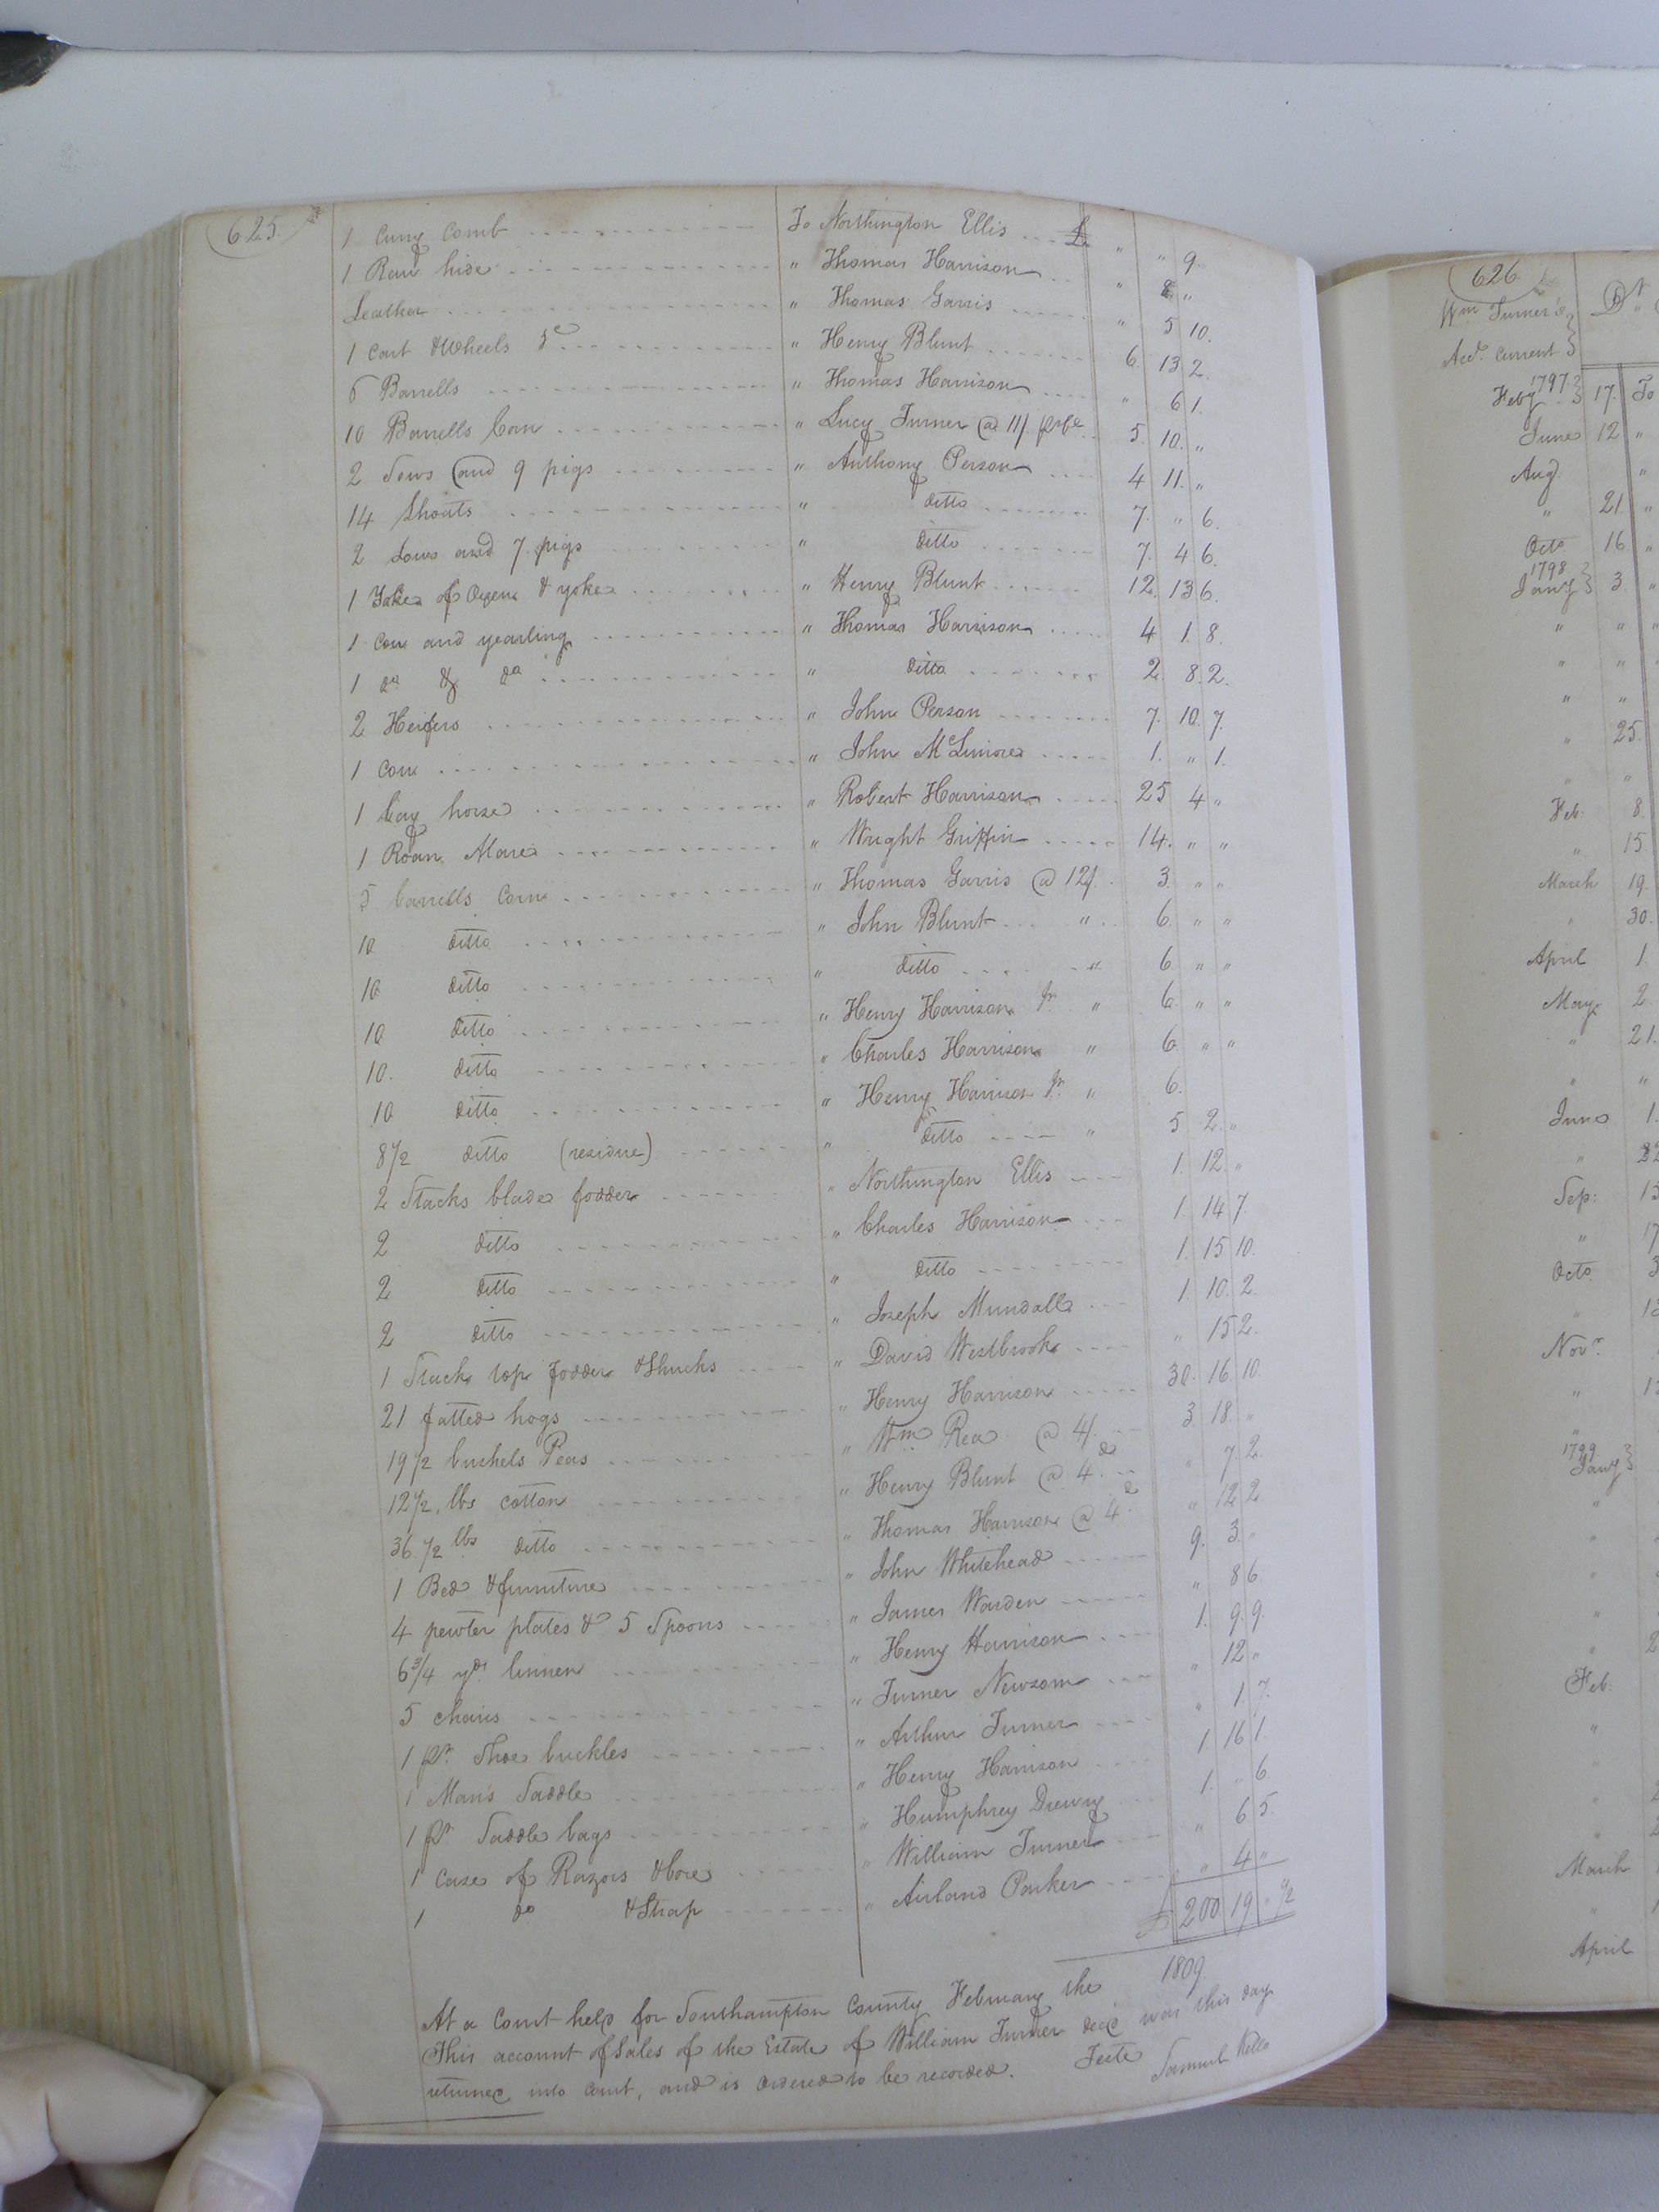 625.
1 Curry Comb To Northington Ellis £ " " 9.
1 Raw hide " Thomas Harrison " 8 "
Leather " Thomas Garris " 5 10.
1 Cart & Wheels " Henry Blunt 6. 13 2.
6 Barrells " Thomas Harrison " 6 1.
10 Barrells Corn " Lucy Turner @ 11/. 5. 10. "
2 Sows and 9 pigs " Anthony Person 4 11. "
14 Shoats " ditto 7. " 6.
2 Sows and 7 pigs " ditto 7. 4 6.
1 Yoke of Oxen & yoke " Henry Blunt 12. 13 6.
1 Cow and yearling " Thomas Harrison 4 1. 8.
1 do & do " ditto 2. 8. 2.
2 Heifers " John Person 7. 10. 7.
1 Cow " John McLemore 1. " 1.
1 bay horse " Robert Harrison 25 4 "
1 Roan Mare " Wright Griffin 14. " "
5 barrells Corn " Thomas Garris @ 12/. 3. " "
10 ditto " John Blunt " 6. " "
10 ditto " ditto " 6. " "
10 ditto " Henry Harrison Jr. " 6. " "
10. ditto " Charles Harrison " 6. " "
10 ditto " Henry Harrison Jr. " 6.
8 1/2 ditto (residue) " ditto " 5 2. "
2 Stacks blade fodder " Northington Ellis 1. 12. "
2 ditto " Charles Harrison 1. 14 7.
2 ditto " ditto 1. 15 10.
2 ditto " Joseph Mundall 1. 10. 2.
1 Stack top fodder & Shucks " David Westbrook " 15 2.
21 fatted hogs " Henry Harrison 30. 16. 10.
19 1/2 bushels Peas " Wm Rea @ 4/. 3. 18. "
12 1/2 lbs cotton " Henry Blunt @ 4d " 7. 2.
36 1/2 lbs ditto " Thomas Harrison @ 4d " 12 2
1 Bed & furniture " John Whitehead 9. 3. "
4 pewter plates & 5 Spoons " James Warden " 8 6.
6 3/4 yds linnen " Henry Harrison 1. 9. 9.
5 chairs " Turner Newsom " 12 "
1 pr. Shoe buckles " Arthur Turner " 1. 7.
1 Man's Saddle " Henry Harrison 1. 16 1.
1 pr. Saddle bags " Humphrey Drewry 1. " 6
1 Case of Razors & " William Turner " 6 5.
1 do & Strap " Parker " 4 "
£ 200 19 " 1/2
At a Court held for Southampton County February the 1809.
This account of Sales of the Estate of William Turner decd was this day
returned into Court, and is Ordered to be recorded. Teste Samuel Kello
626
Wm Turner's
Acct. Current
Dr
1797
Feby 17. To
June 12 "
Aug. "
" 21. "
Octo 16 "
1798
Jany 3. "
" " "
" "
" "
" 25.
" "
Feb: 8.
" 15
March 19.
" 30.
April 1.
May 2.
" 21.
" "
June 1.
" 22
Sep: 15
" 17
Octo. 3
" 13
Novr.
"
1799
Jany
"
Feb:
"
March
"
April